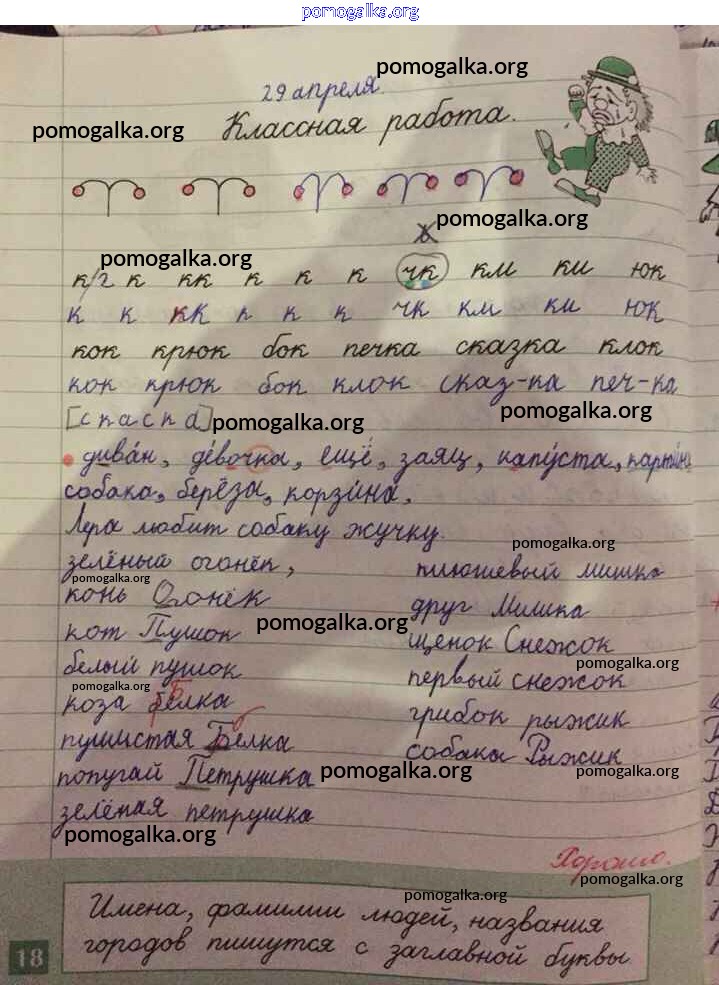 pomogalka.org
pomogalka.org
29 апреля.
pomogalka.org
Классная работа.
pomogalka.org
ь
pomogalka.org
к/г к кк к к к чк км ки юк
к к кк к к к чк км ки юк
кок крюк бок печка сказка клок
кок крюк бок клок сказ-ка печ-ка
[скаска]
pomogalka.org
pomogalka.org
диван, девочка, ещё, заяц, капуста, картина
собака, берёза, корзина.
Лера любит собаку жучку.
pomogalka.org
зелёный огонёк,
плюшевый мишка
pomogalka.org
конь Огонёк
друг Мишка
pomogalka.org
кот Пушок
щенок Снежок
pomogalka.org
белый пушок
первый снежок
pomogalka.org
коза белка
Б
грибок рыжик
пушистая Белка
б
собака Рыжик
попугай Петрушка
pomogalka.org
pomogalka.org
зелёная петрушка
pomogalka.org
Хорошо.
pomogalka.org
pomogalka.org
Имена, фамилии людей, названия
городов пишутся с заглавной буквы.
pomogalka.org
18